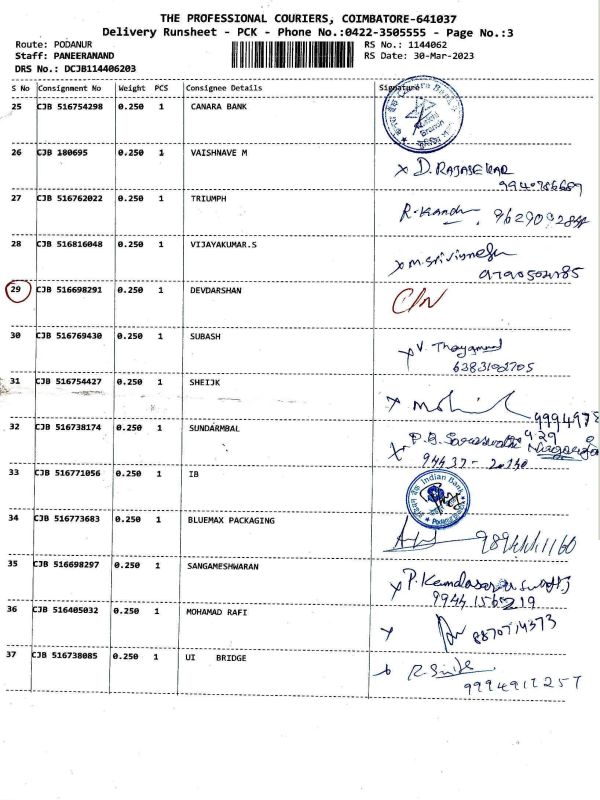 THE PROFESSIONAL COURIERS, COIMBATORE-641037
Delivery Runsheet - PCK - Phone No.:0422-3505555 - Page No.:3
Route: PODANUR RS No.: 1144062
Staff: PANEERANAND RS Date: 30-Mar-2023
DRS No.: DCJB114406203
S No Consignment No Weight PCS Consignee Details Signature
25 CJB 516754298 0.250 1 CANARA BANK
26 CJB 180695 0.250 1 VAISHNAVE M
x D. RAJASEKAR
27 CJB 516762022 0.250 1 TRIUMPH
28 CJB 516816048 0.250 1 VIJAYAKUMAR.S
29 CJB 516698291 0.250 1 DEVDARSHAN
30 CJB 516769430 0.250 1 SUBASH
31 CJB 516754427 0.250 1 SHEIJK
32 CJB 516738174 0.250 1 SUNDARMBAL
33 CJB 516771056 0.250 1 IB
Indian Bank
34 CJB 516773683 0.250 1 BLUEMAX PACKAGING
35 CJB 516698297 0.250 1 SANGAMESHWARAN
36 CJB 516405032 0.250 1 MOHAMAD RAFI
8870714373
37 CJB 516738085 0.250 1 UI BRIDGE